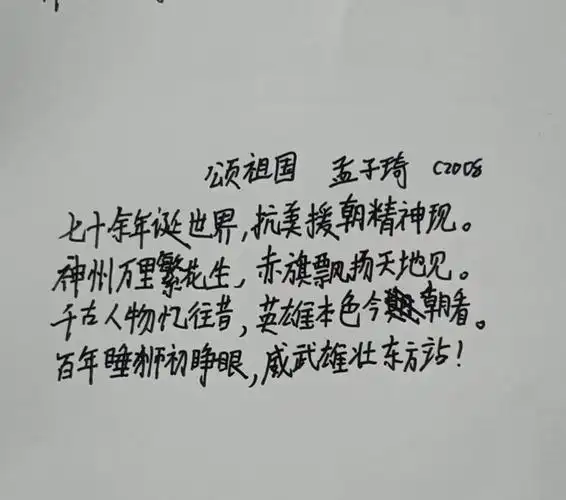 颂祖国 孟子琦 C2008
七十余年诞世界,抗美援朝精神现。
神州万里繁花生,赤旗飘扬天地见。
千古人物忆往昔,英雄本色今朝看。
百年睡狮初睁眼,威武雄壮东方站!